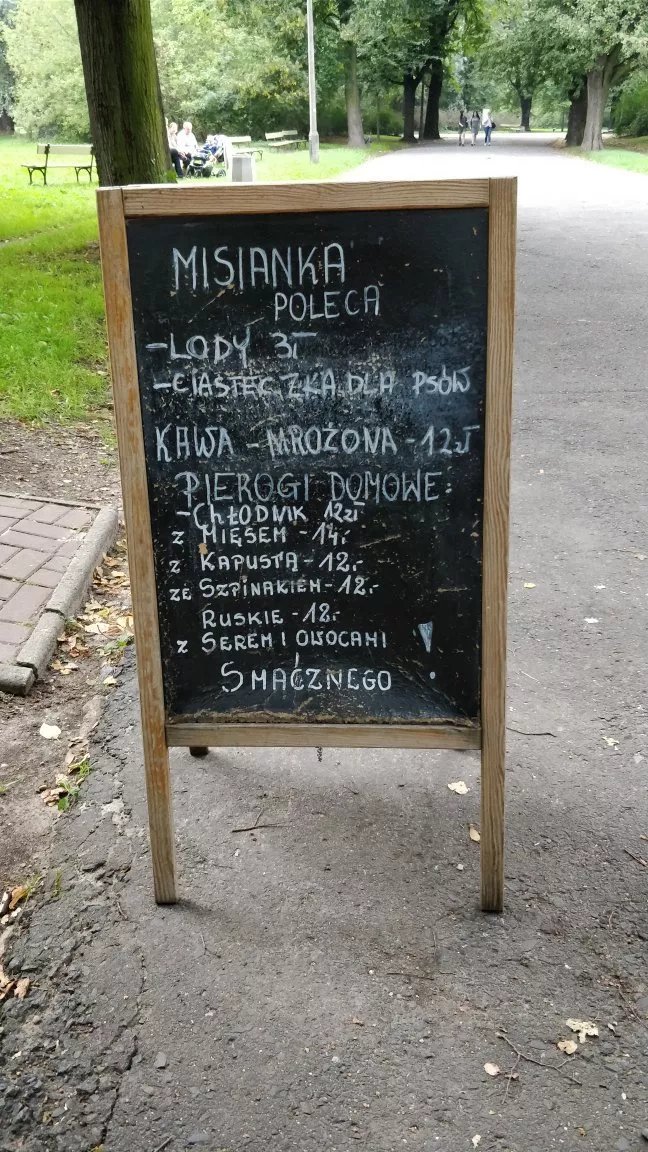 MISIANKA
POLECA
-LODY 3zł
-CIASTECZKA DLA PSÓW
KAWA - MROŻONA - 12zł
PIEROGI DOMOWE:
-CHŁODNIK 12zł
z MIĘSEM - 14.-
z KAPUSTĄ - 12.-
ze SZPINAKIEM - 12.-
RUSKIE - 12.-
z SEREM I OWOCAMI
SMACZNEGO !